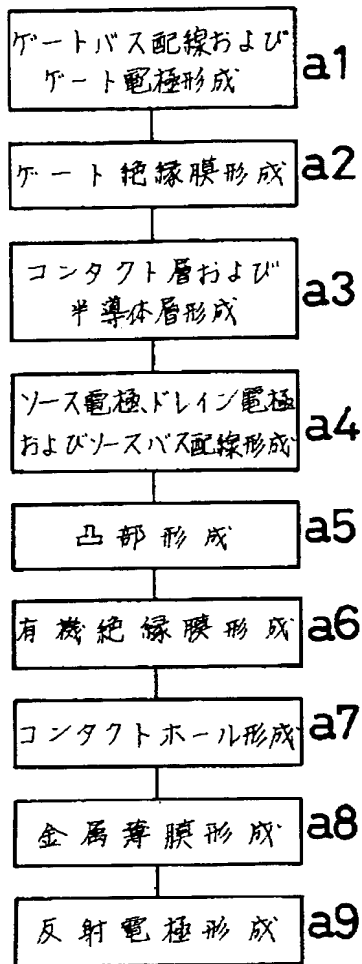 ゲートバス配線および
ゲート電極形成
a1
ゲート絶縁膜形成
a2
コンタクト層および
半導体層形成
a3
ソース電極、ドレイン電極
およびソースバス配線形成
a4
凸部形成
a5
有機絶縁膜形成
a6
コンタクトホール形成
a7
金属薄膜形成
a8
反射電極形成
a9